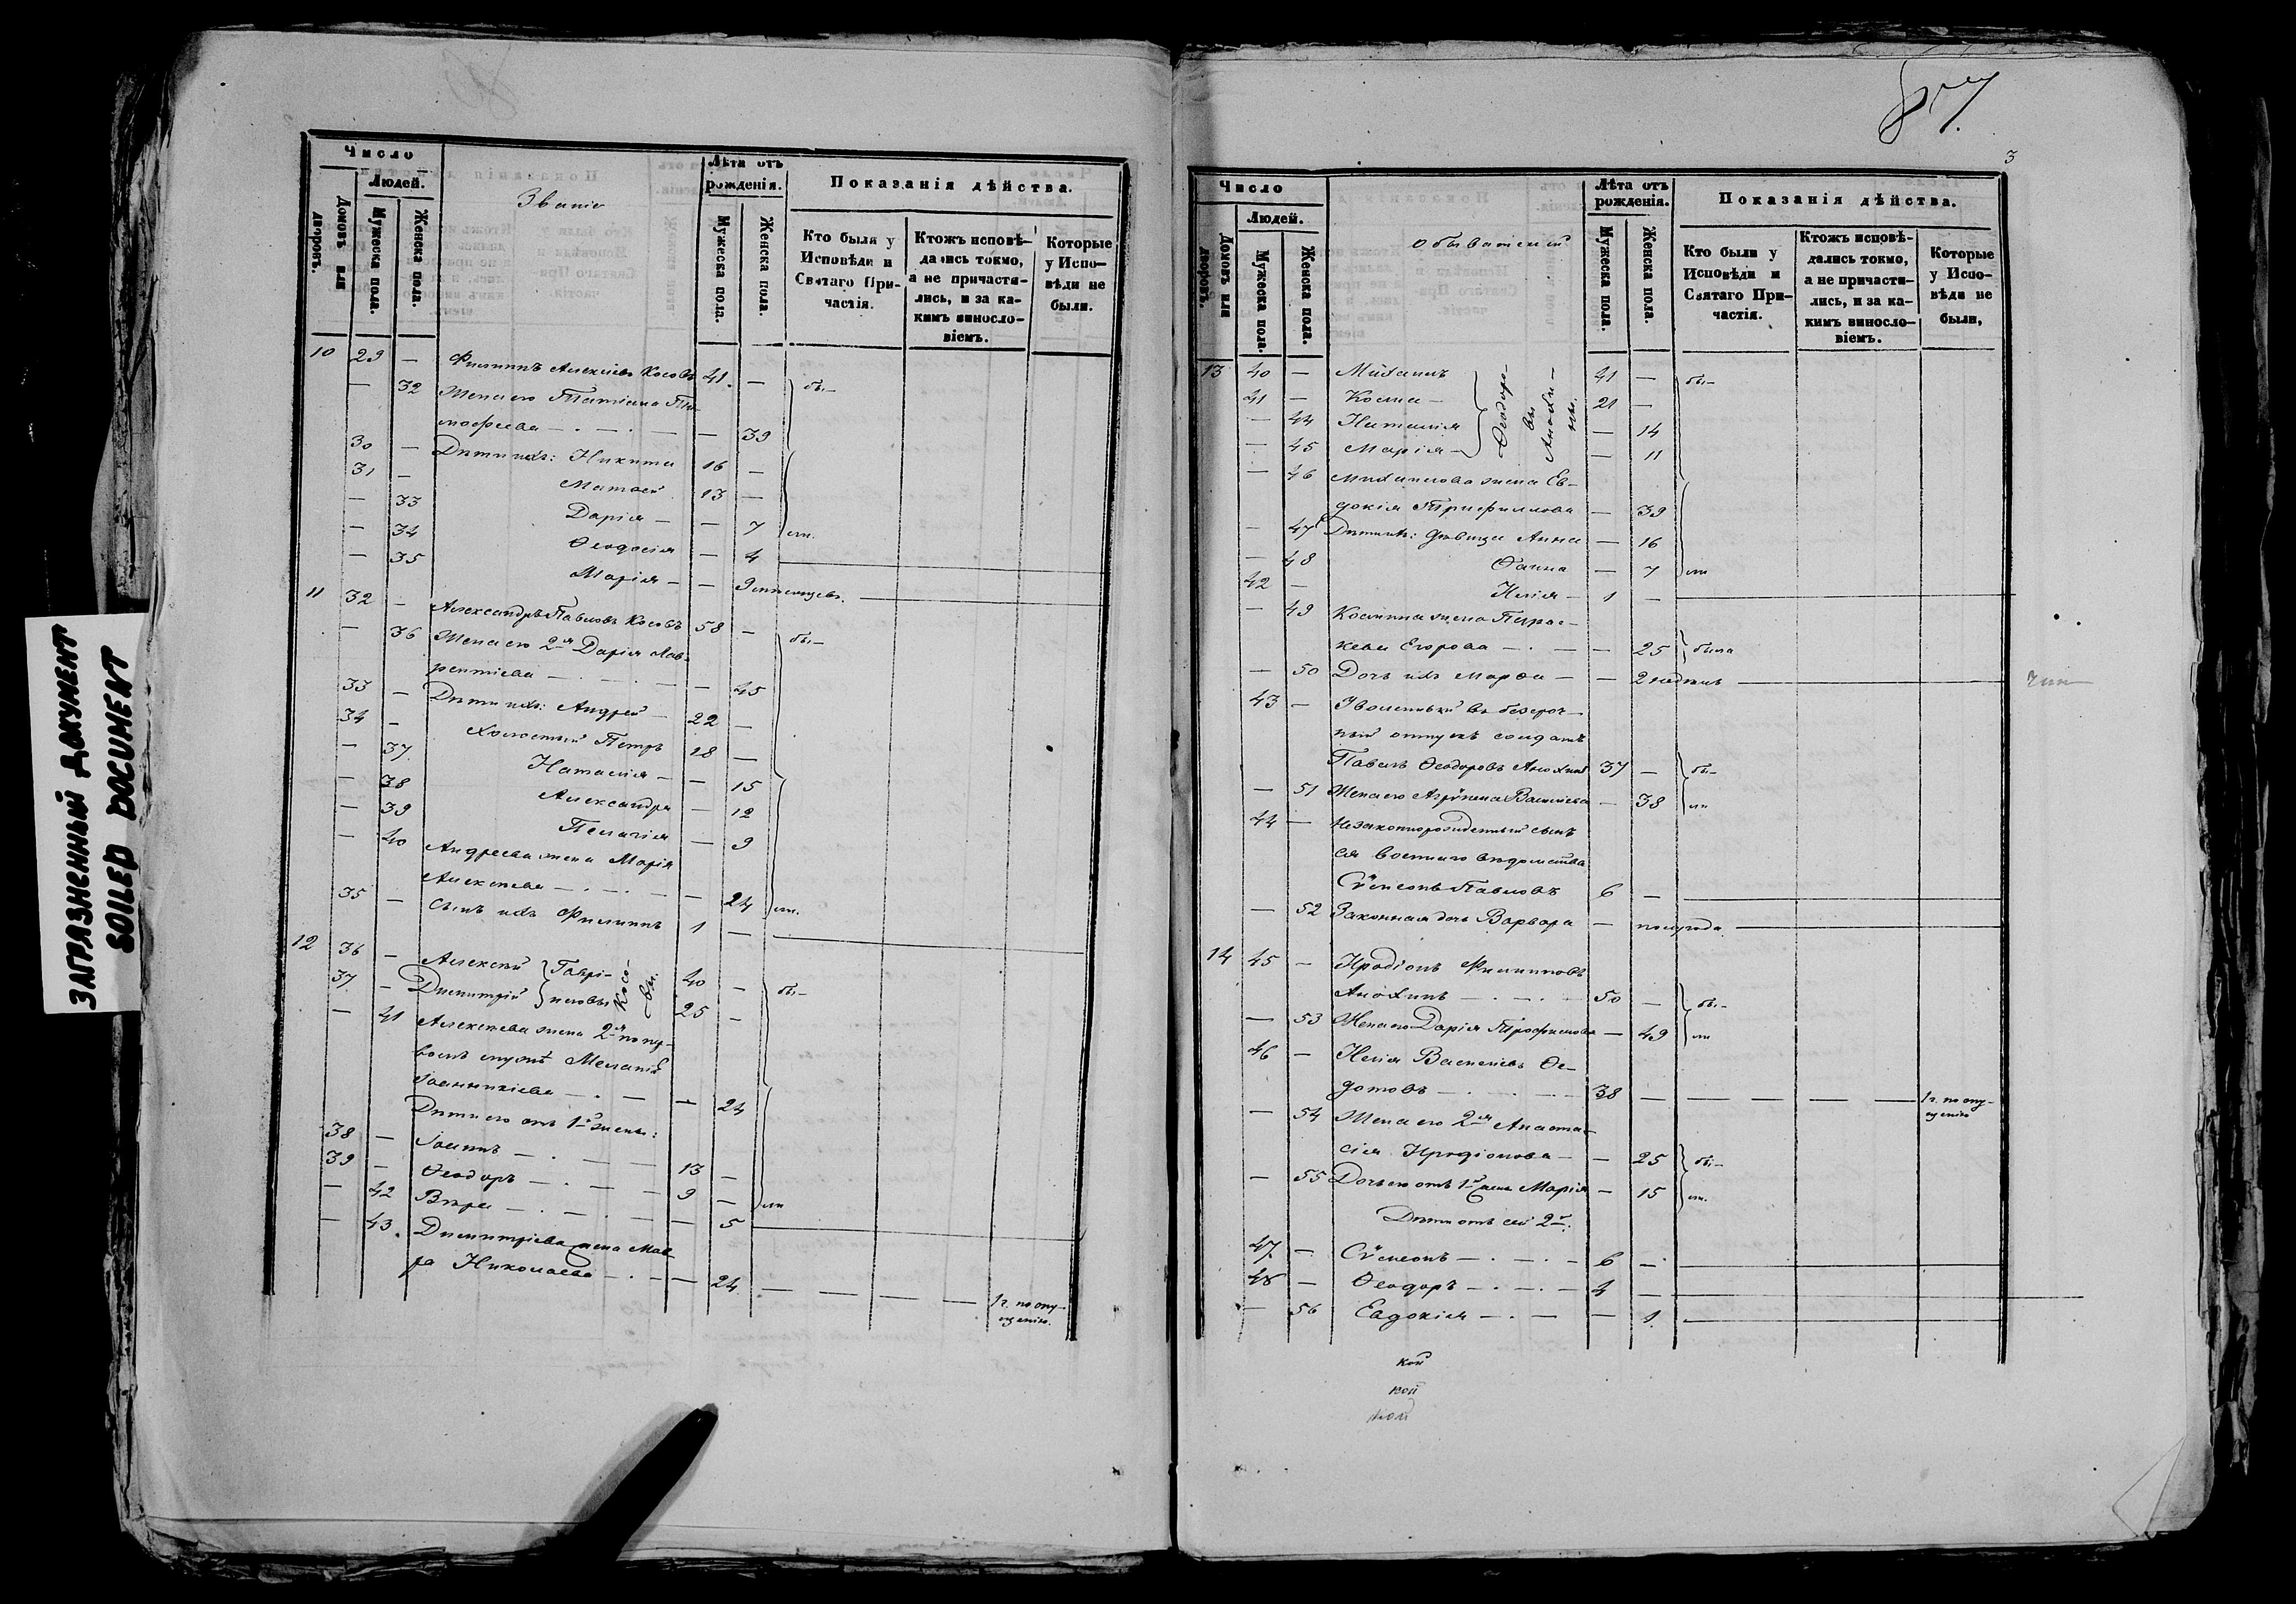 ЗАГРЯЗНЕННЫЙ ДОКУМЕНТ
SOILED DOCUMENT
Число
Людей.
Домовъ или дворовъ.
Мужеска пола.
Женска пола.
Званіе
Лѣта отъ рожденія.
Мужеска пола.
Женска пола.
Показанія дѣйства.
Кто были у Исповѣди и Святаго При-частія.
Ктожъ исповѣ-дались токмо, а не причасти-лись, и за ка-кимъ виносло-віемъ.
Которые у Испо-вѣди не были.
10 29 — Филиппъ Алексѣевъ Косовъ 41. — бы-
— 32 Жена его Татіана Ти-
мофеева — . — . — — 39
30 — Дѣти ихъ: Никита 16 —
31 — Матвей 13 —
— 33 Дарія — — 7 ли.
— 34 Ѳеодосія — 4
— 35 Марія — — 9 мѣсяцевъ.
11 32 — Александръ Павловъ Косовъ 58 — бы-
— 36 Жена его 2я Дарія Лав-
рентіева — . — . — — 45
33 — Дѣти ихъ: Андрей — 22 —
34 — Холостый Петръ 18 —
— 37 Наталія — — 15
— 38 Александра — 12
— 39 Пелагія — 9
— 40 Андреева жена Марія
Алексѣева — . — . — — 24 ли.
35 — Сынъ ихъ Филиппъ 1 —
12 36 — Алексѣй } Гаврі- Косо- 40 — бы-
37 — Димитрій } иловы вы. 25 —
— 41 Алексѣева жена 2я по пер-
вомъ мужѣ Меланія
Іоанникіева — . — — 24
Дѣти его отъ 1й жены:
38 — Іоаннъ — . — — 13 —
39 — Ѳеодоръ — . — — 9 —
— 42 Вѣра — . — . — — 5 ли
— 43. Димитріева жена Мав-
ра Николаева — . — — 24 — — — — 1 г. по опу-
щенію.
87.
3
Число
Людей.
Домовъ или дворовъ.
Мужеска пола.
Женска пола.
обывателей
Лѣта отъ рожденія.
Мужеска пола.
Женска пола.
Показанія дѣйства.
Кто были у Исповѣди и Святаго При-частія.
Ктожъ исповѣ-дались токмо, а не причасти-лись, и за ка-кимъ винослo-віемъ.
Которые у Испо-вѣди не были,
13 40 — Михаилъ Ѳеодоро- 41 — бы-
41 — Косма — вы 21 —
— 44 Наталія Анохи- — 14
— 45 Марія — ны. — 11
— 46 Михаилова жена Ев-
докія Трифиллова — 39
— 47 Дѣти ихъ: дѣвица Анна — 16
— 48 Ѳаина — 7 ли
42 — Илія — 1 —
— 49 Космина жена Парас-
кева Егорова — . — — 25 была
— 50 Дочь ихъ Марѳа — — 2 недѣль
43 — Уволенный въ безсроч-
ный отпускъ солдатъ
Павелъ Ѳеодоровъ Анохинъ 37 — бы-
— 51 Жена его Агрипина Васильева — 38 ли
44 — Незаконнорожденный сынъ
ея военнаго вѣдомства
Сѵмеонъ Павловъ 6 —
— 52 Законная дочь Варвара — полугода
14 45 — Иродіонъ Филипповъ
Анохинъ — . — . — 50 — бы-
— 53 Жена его Дарія Трофимова — 49 ли
46 — Илія Васильевъ Ѳе-
дотовъ — . — . — 38 — — — — 1 г. по опу-
щенію
— 54 Жена его 2я Анаста-
сія Иродіонова — — 25 бы-
— 55 Дочь его отъ 1й жены Марія — 15 ли.
Дѣти отъ сей 2й:
47 — Сѵмеонъ — . — . — 6 —
48 — Ѳеодоръ — . — . — 4 —
— 56 Евдокія — . — — 1.
кой
кой